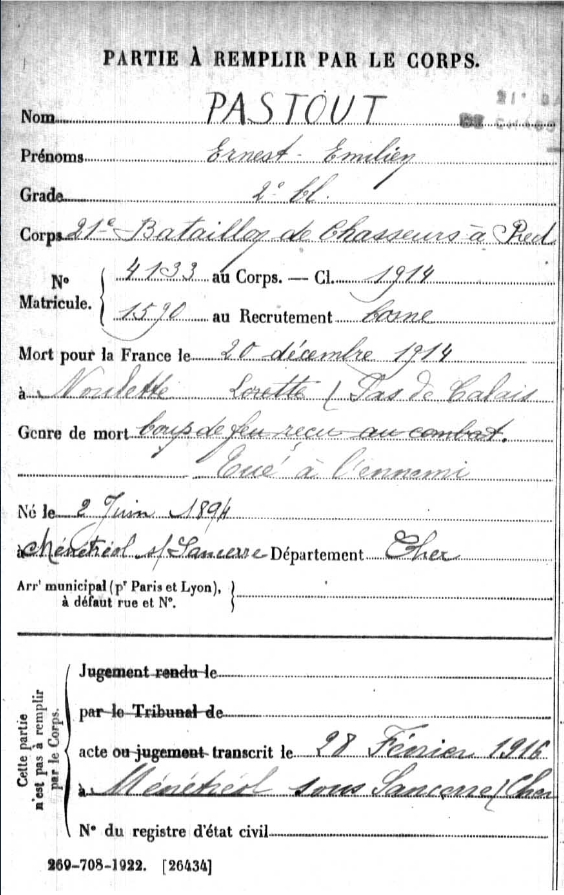 PARTIE À REMPLIR PAR LE CORPS.
21e BA
DE CHASS
Nom PASTOUT
Prénoms Ernest - Emilien
Grade 2e Cl.
Corps 21e Bataillon de Chasseurs à Pied
No Matricule. { 4133 au Corps. — Cl. 1914
1590 au Recrutement Cosne
Mort pour la France le 20 décembre 1914
à Noulette Lorette (Pas de Calais
Genre de mort Coup de feu reçu au combat.
Tué à l'ennemi
Né le 2 Juin 1894
à Ménétréol s/ Sancerre Département Cher
Arrt municipal (pr Paris et Lyon), à défaut rue et No. }
Cette partie n'est pas à remplir par le Corps.
Jugement rendu le
par le Tribunal de
acte ou jugement transcrit le 28 Février 1916
à Ménétréol sous Sancerre (Cher
No du registre d'état civil
269-708-1922. [26434]